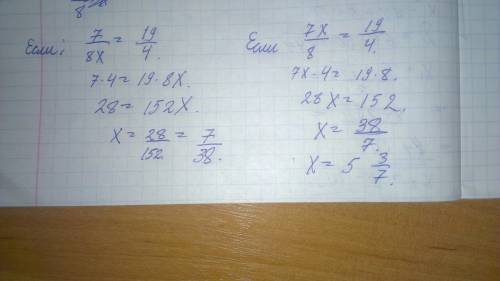 Если: 7/8x = 19/4.
7·4 = 19·8x.
28 = 152x.
x = 28/152 = 7/38.
Если 7x/8 = 19/4.
7x·4 = 19·8.
28x = 152.
x = 38/7.
x = 5 3/7.